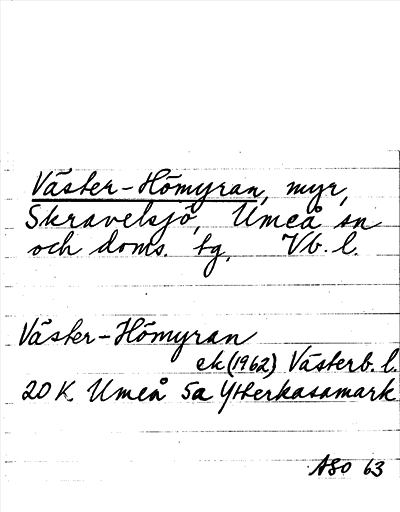 Väster-Hömyran, myr,
Skravelsjö, Umeå sn
och doms. tg. Vb. l.
Väster-Hömyran
ek (1962) Västerb. l.
20 K Umeå 5a Ytterkasamark
ASO 63